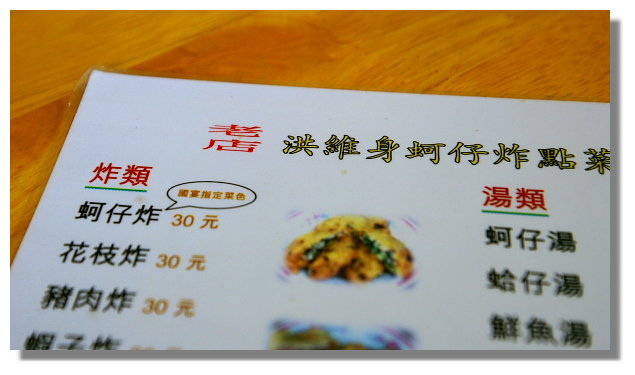 老店 洪維身蚵仔炸點菜
炸類
國宴指定菜色
蚵仔炸 30 元
花枝炸 30 元
豬肉炸 30 元
蝦子炸
湯類
蚵仔湯
蛤仔湯
鮮魚湯